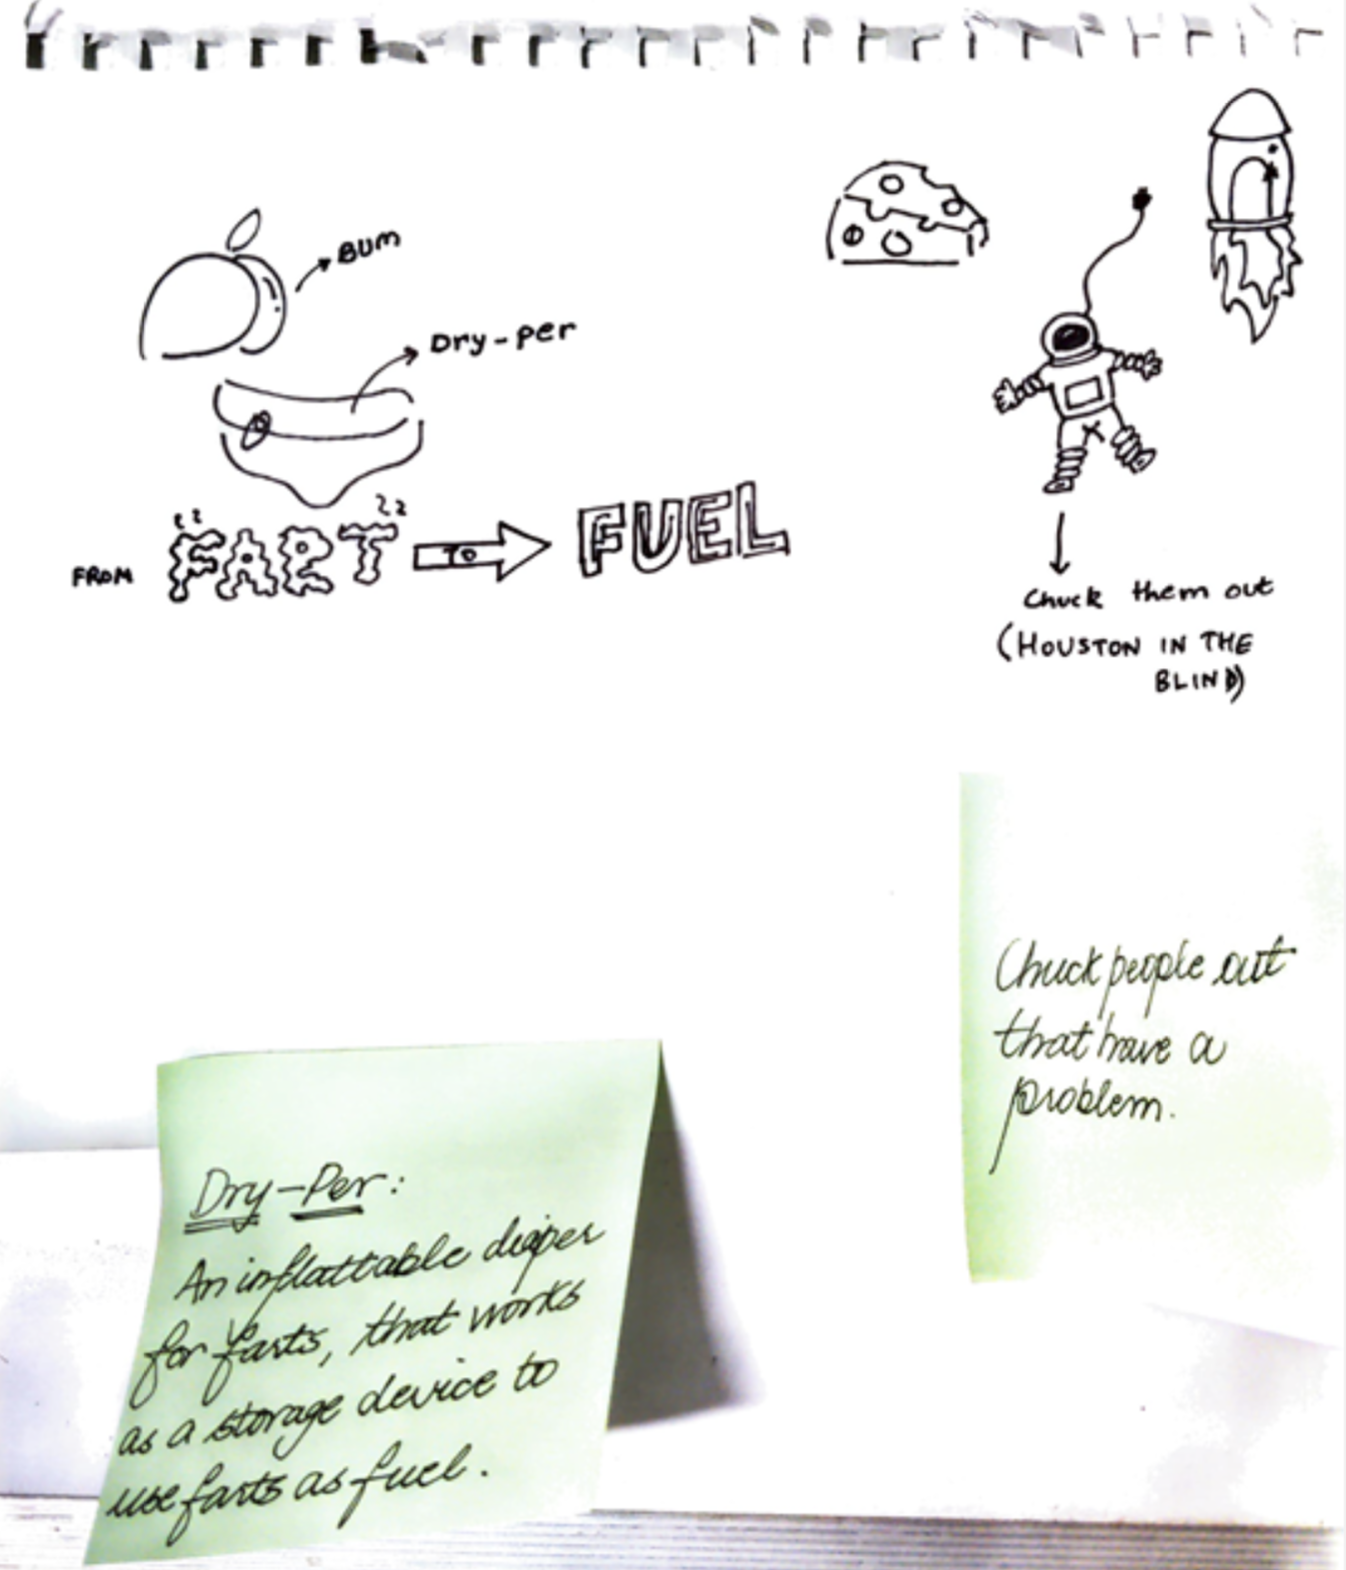 BUM
Dry-per
FROM FART TO FUEL
Chuck them out
(HOUSTON IN THE
BLIND)
Chuck people out
that have a
problem.
Dry-Per:
An inflattable diaper
for farts, that works
as a storage device to
use farts as fuel.